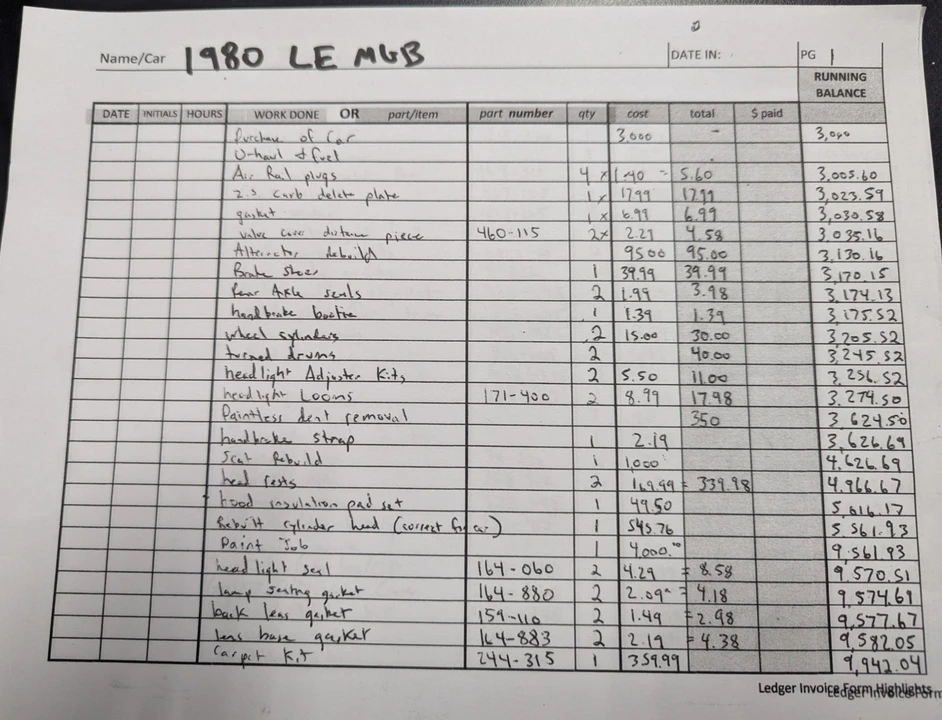 Name/Car 1980 LE MGB DATE IN: PG 1
RUNNING BALANCE
DATE INITIALS HOURS WORK DONE OR part/item part number qty cost total $ paid
Purchase of Car 3,000 - 3,000
U-haul & fuel
Air Rail plugs 4 x 1.40 = 5.60 3,005.60
carb delete plate 1 x 17.99 17.99 3,023.59
gasket 1 x 6.99 6.99 3,030.58
valve cover distance piece 460-115 2x 2.29 4.58 3,035.16
Alternator rebuild 95.00 95.00 3,130.16
Brake shoes 1 39.99 39.99 3,170.15
Rear Axle seals 2 1.99 3.98 3,174.13
handbrake bootie 1 1.39 1.39 3,175.52
wheel cylinders 2 15.00 30.00 3,205.52
turned drums 2 40.00 3,245.52
headlight Adjuster Kits 2 5.50 11.00 3,256.52
headlight Looms 171-400 2 8.99 17.98 3,274.50
Paintless dent removal 350 3,624.50
handbrake strap 1 2.19 3,626.69
Seat Rebuild 1 1,000 4,626.69
head rests 2 169.99 = 339.98 4,966.67
hood insulation pad set 1 49.50 5,016.17
Rebuilt cylinder head (correct for car) 1 545.76 5,561.93
Paint Job 1 4000.00 9,561.93
headlight seal 164-060 2 4.29 = 8.58 9,570.51
lamp seating gasket 164-880 2 2.09 = 4.18 9,574.69
back lens gasket 159-110 2 1.49 = 2.98 9,577.67
lens base gasket 164-883 2 2.19 = 4.38 9,582.05
Carpet Kit 244-315 1 359.99 9,942.04
Ledger Invoice Form Highlights